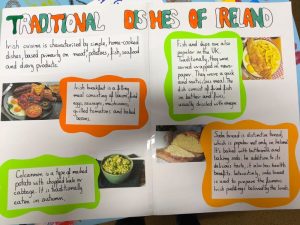 TRADITIONAL DISHES OF IRELAND
Irish cuisine is characterised by simple, home-cooked
dishes, based primarily on meat, potatoes, fish, seafood
and dairy products.
Irish breakfast is a filling
meal consisting of bacon, fried
eggs, sausages, mushrooms,
grilled tomatoes and baked
beans.
Colcannon is a type of mashed
potato with chopped kale or
cabbage. It is traditionally
eaten in autumn.
Fish and chips are also
popular in the UK.
Traditionally, they were
served wrapped in news-
paper. They were a quick
and nutritious meal. The
dish consist of fried fish
in batter and fries,
usually served with vinegar.
Soda bread is distinctive bread,
which is popular not only in Ireland.
It's baked with buttermilk and
baking soda. In addition to its
delicious taste, it also has
health benefits. Interestingly, soda bread
is used to prepare the famous
Irish puddings beloved by the locals.